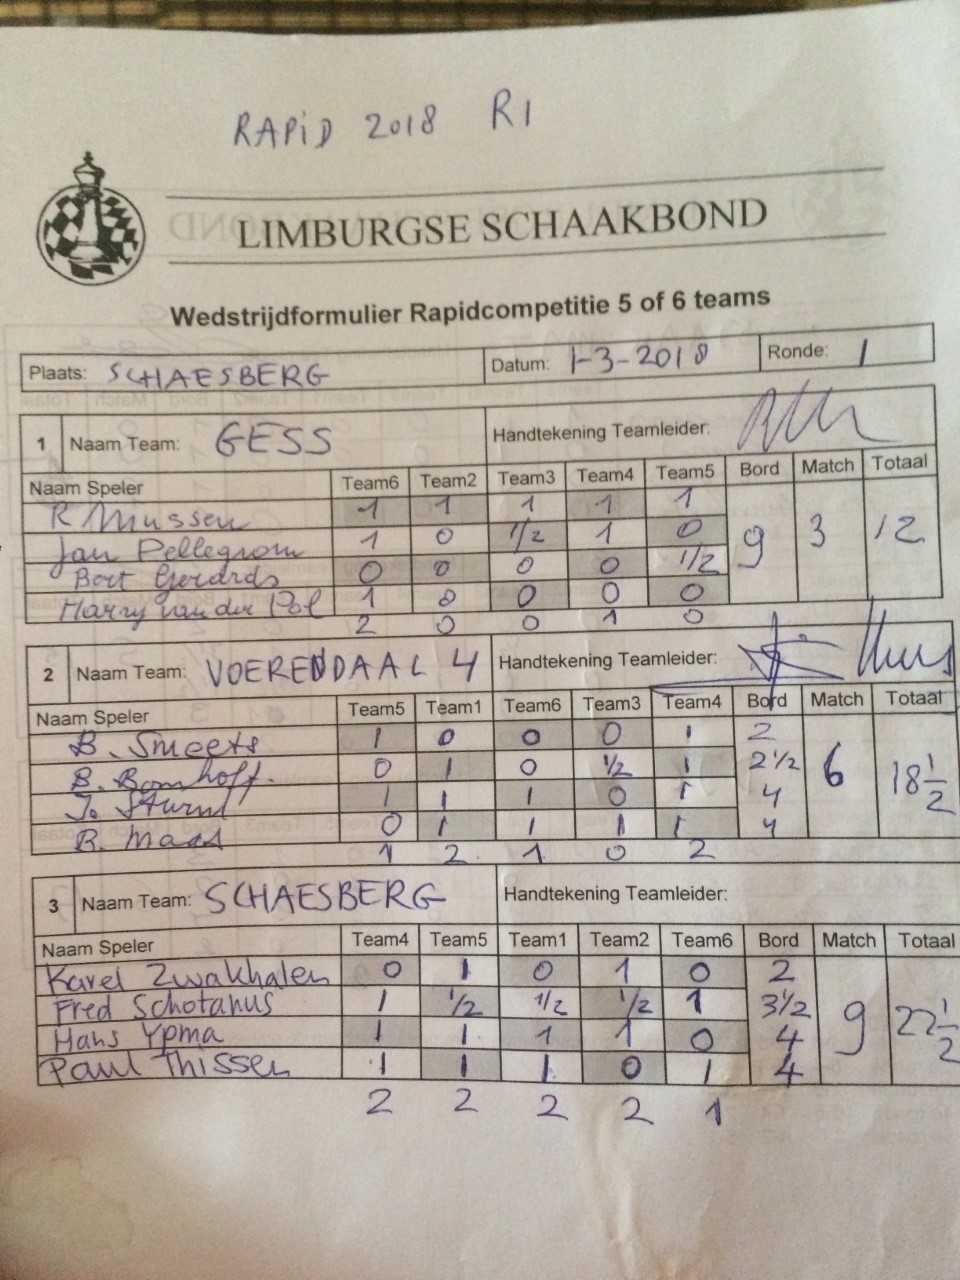 RAPID 2018 R1
LIMBURGSE SCHAAKBOND
Wedstrijdformulier Rapidcompetitie 5 of 6 teams
Plaats: SCHAESBERG Datum: 1-3-2018 Ronde: 1
1 Naam Team: GESS Handtekening Teamleider:
Naam Speler Team6 Team2 Team3 Team4 Team5 Bord Match Totaal
R Mussen 1 1 1 1 1
Jan Pellegrom 1 0 1/2 1 0 9 3 12
Bort Gerards 0 0 0 0 1/2
Harry van der Pol 1 0 0 0 0
2 0 0 1 0
2 Naam Team: VOERENDAAL 4 Handtekening Teamleider:
Naam Speler Team5 Team1 Team6 Team3 Team4 Bord Match Totaal
B. Smeets 1 0 0 0 1 2
B. Bomhoff. 0 1 0 1/2 1 2 1/2 6 18 1/2
Jo Sturm 1 1 1 0 1 4
B. Maas 0 1 1 1 1 4
1 2 1 0 2
3 Naam Team: SCHAESBERG Handtekening Teamleider:
Naam Speler Team4 Team5 Team1 Team2 Team6 Bord Match Totaal
Karel Zwakhalen 0 1 0 1 0 2
Fred Schotanus 1 1/2 1/2 1/2 1 3 1/2 9 22 1/2
Hans Ypma 1 1 1 1 0 4
Paul Thissen 1 1 1 0 1 4
2 2 2 2 1